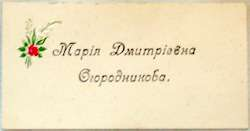 Марія Дмитріевна
Огородникова.